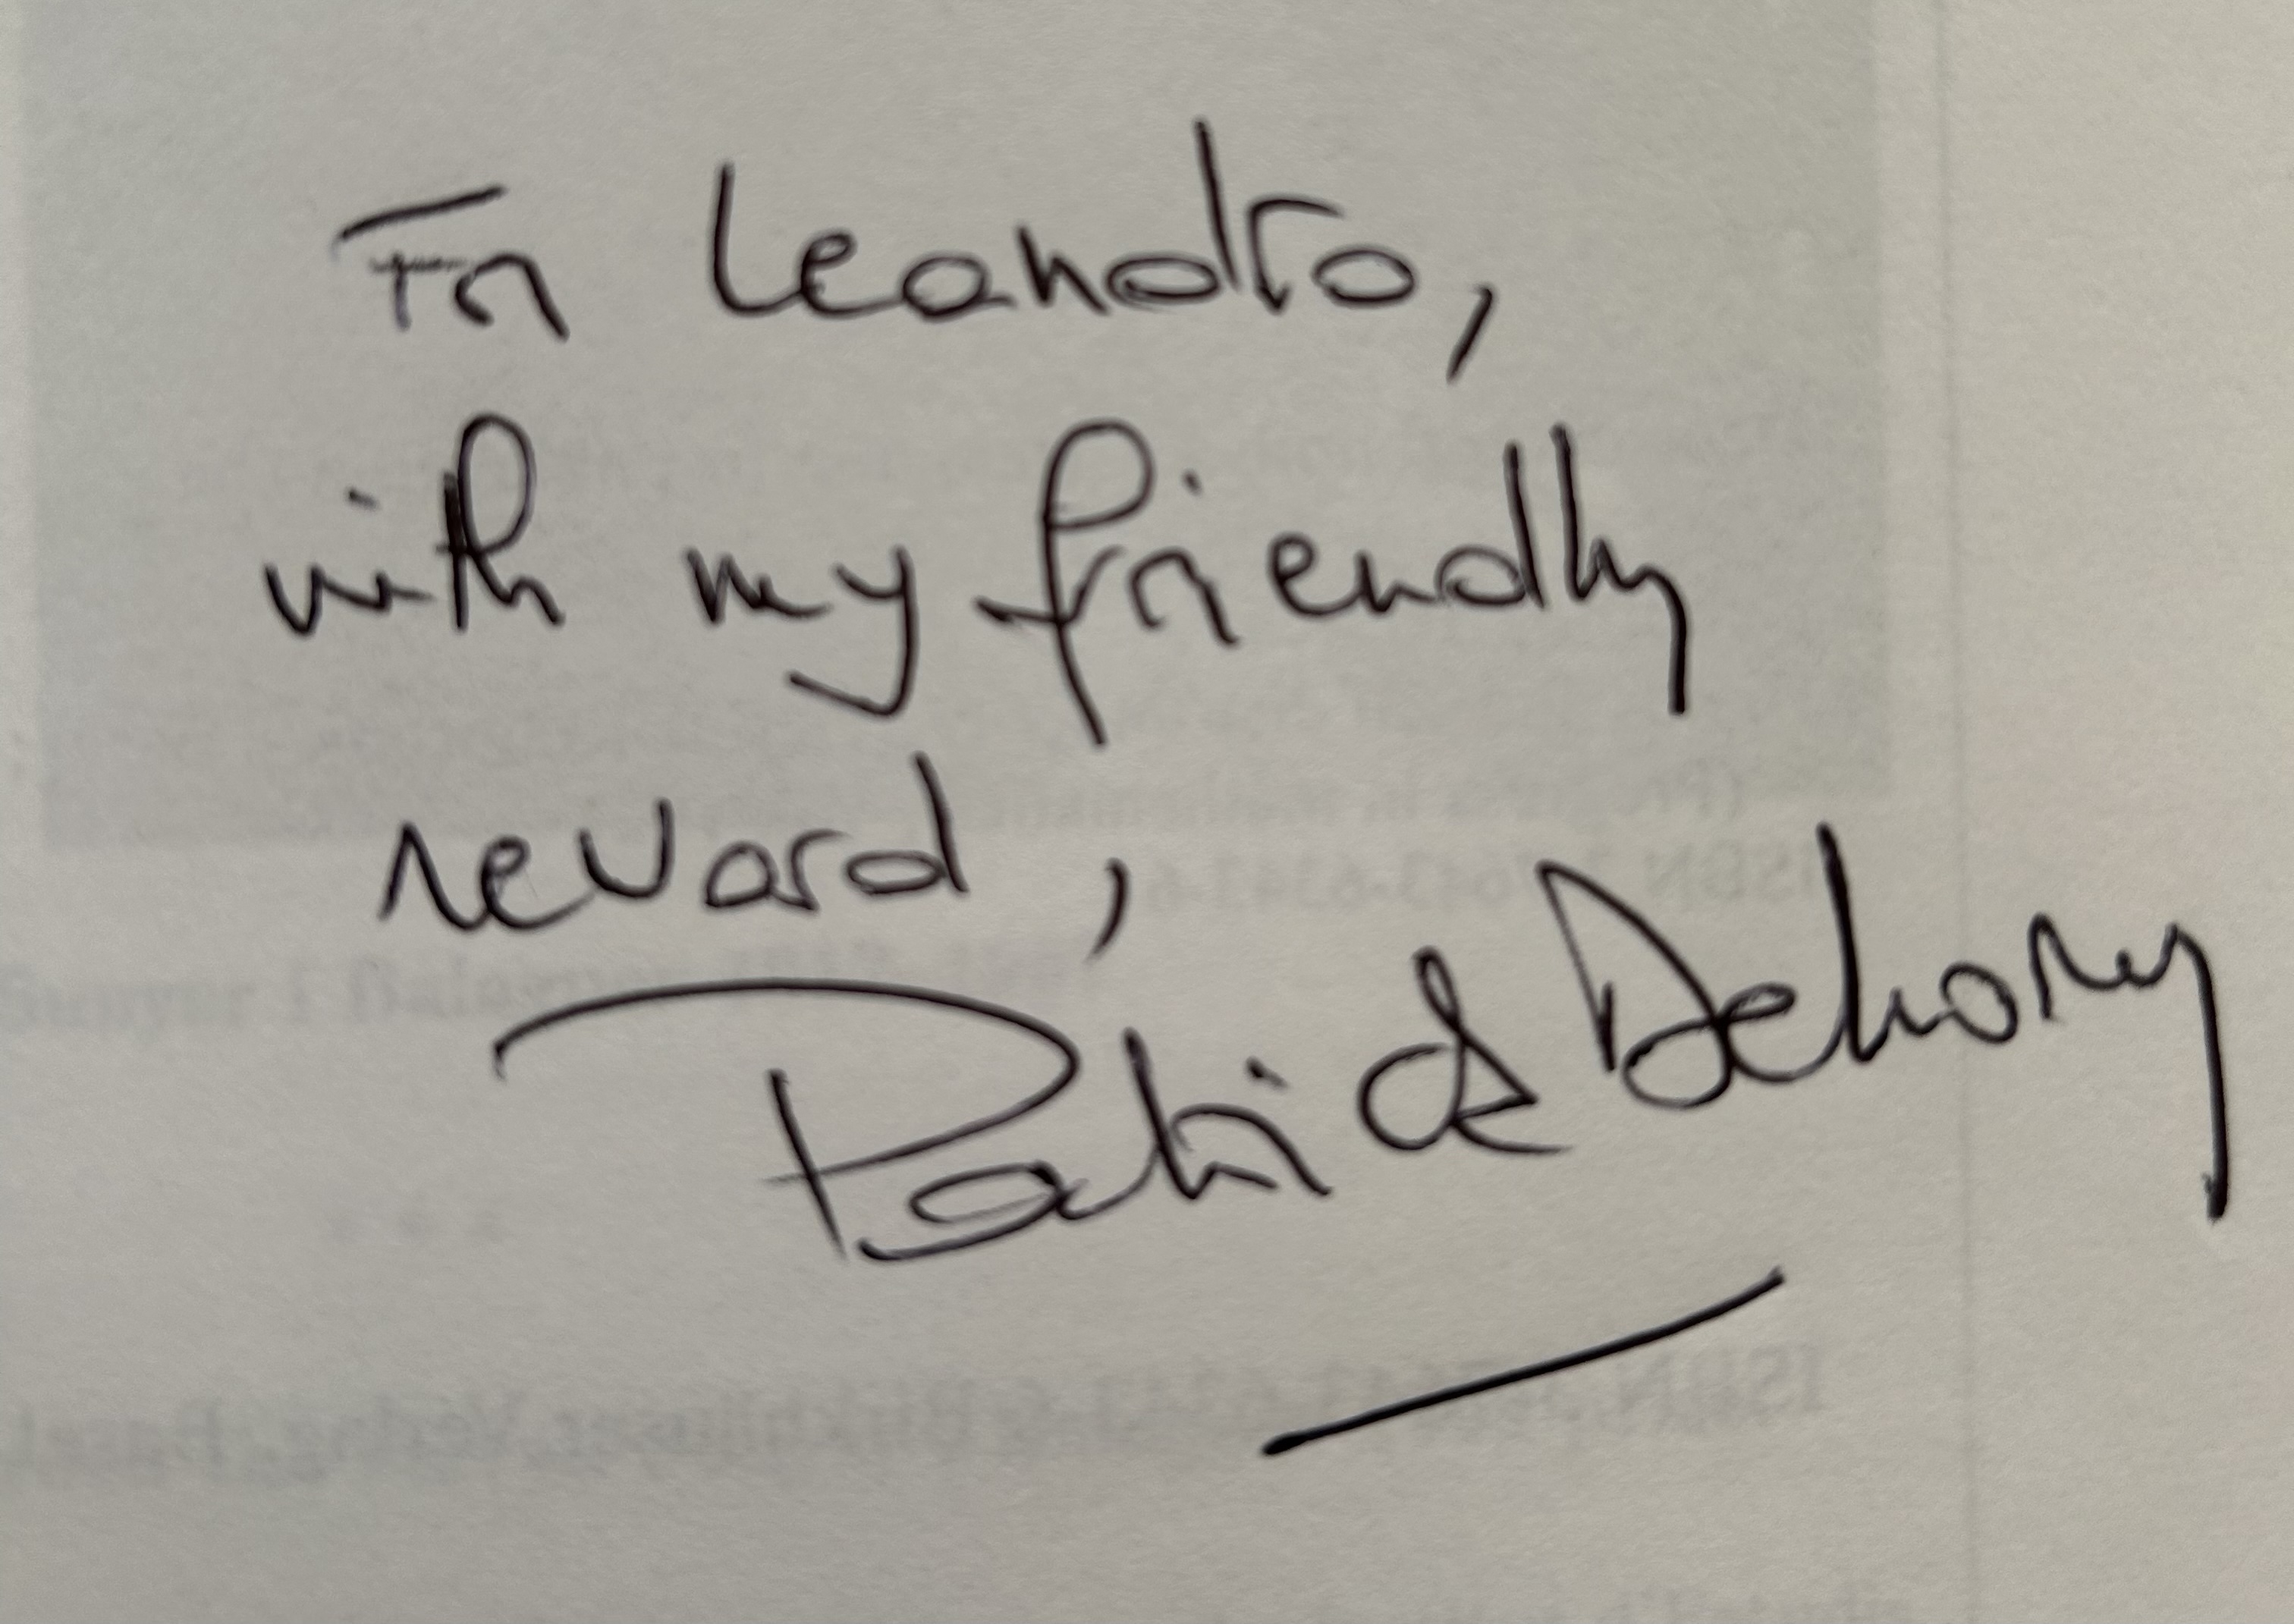 For Leandro,
with my friendly
reward,
Patrick Dehornoy